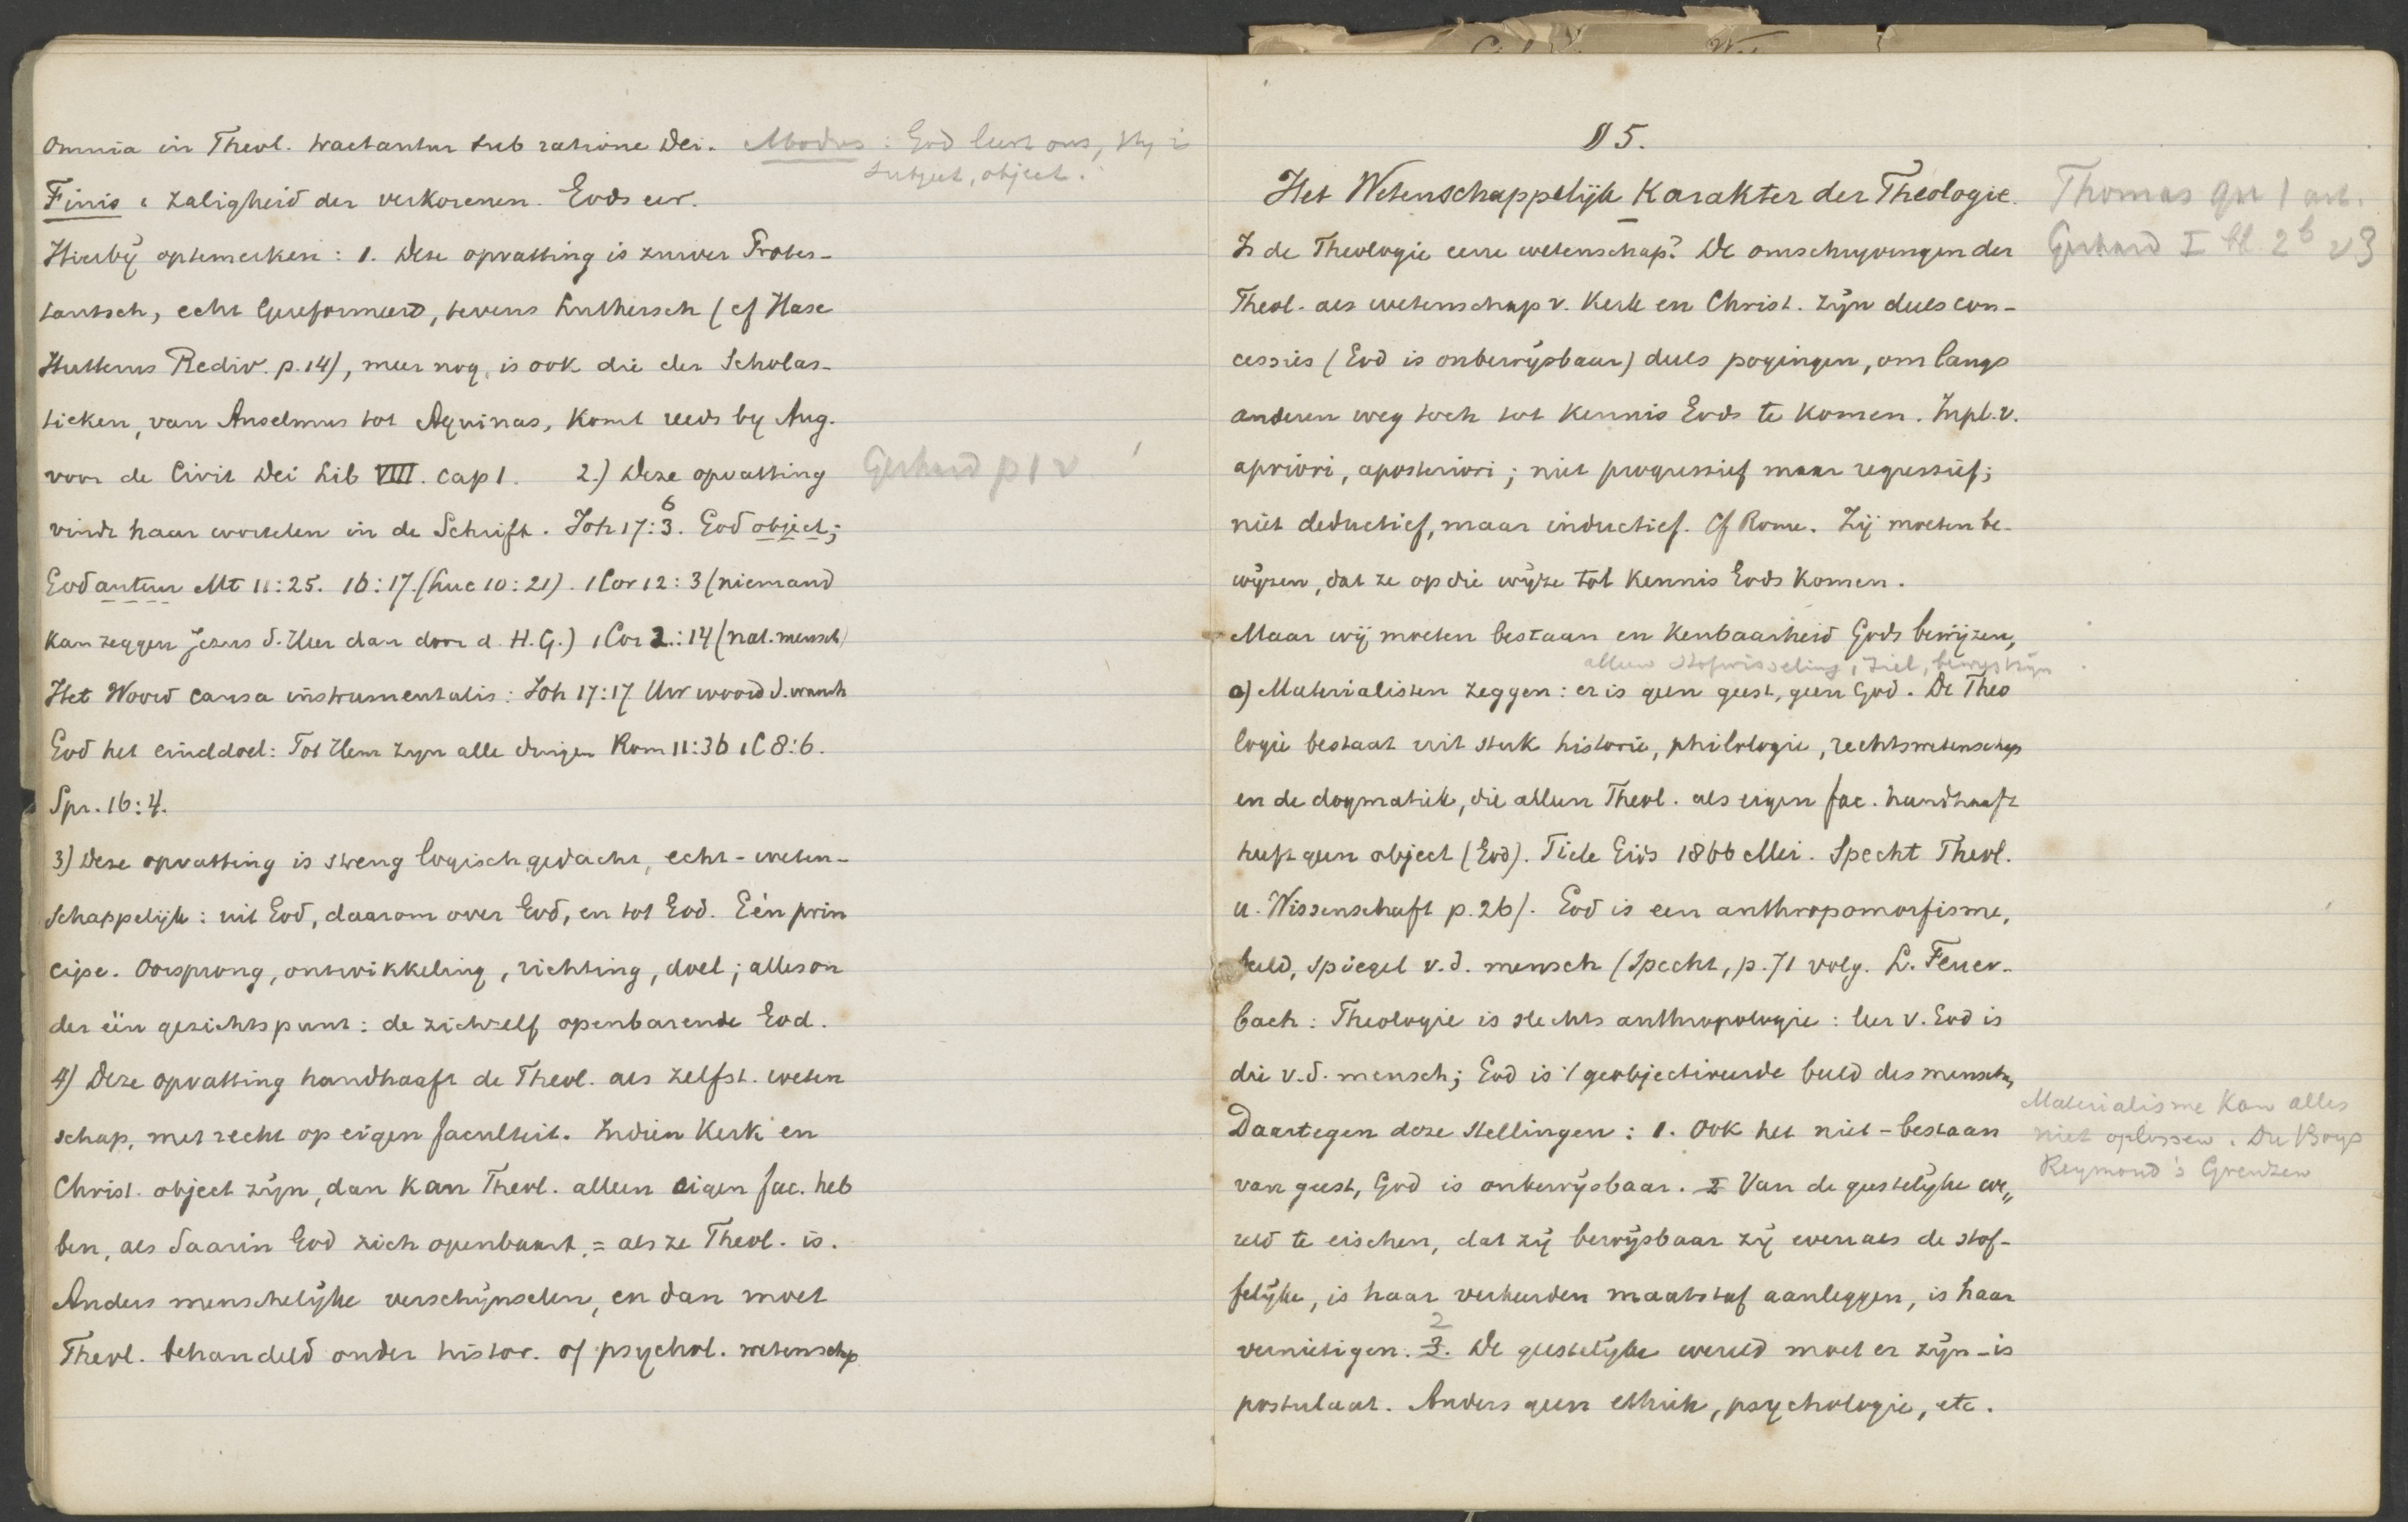 Omnia in Theol. tractantur sub ratione Dei. Modus: God leert ons, Hij is
subject, object.
Finis: zaligheid der verkorenen. Gods eer.
Hierbij optemerken: 1. Deze opvatting is zuiver Protes-
tantsch, echt Gereformeerd, tevens Luthersch (cf Hase
Hutterus Rediv. p. 14), meer nog, is ook die der Scholas-
tieken, van Anselmus tot Aquinas, komt reeds by Aug.
voor de Civit Dei Lib VIII. cap 1. 2.) Deze opvatting
Gerhard p 1 v
vindt haar wortelen in de Schrift. Joh 17:3. 6 God object;
God auteur Mt 11:25. 16:17. (Luc 10:21). 1 Cor 12:3 (niemand
kan zeggen Jezus d. Heer dan door d. H.G.) 1 Cor 2:14 (nat. mensch)
Het Woord causa instrumentalis: Joh 17:17 Uw woord d. waarh
God het einddoel: Tot Hem zyn alle dingen Rom 11:36 1 C 8:6.
Spr. 16:4.
3) Deze opvatting is streng logisch gedacht, echt-weten-
schappelijk: uit God, daarom over God, en tot God. Eén prin
cipe. Oorsprong, ontwikkeling, richting, doel; alles on
der één gezichtspunt: de zichzelf openbarende God.
4) Deze opvatting handhaaft de Theol. als zelfst. weten
schap, met recht op eigen faculteit. Indien Kerk en
Christ. object zijn, dan kan Theol. alleen eigen fac. heb
ben, als daarin God zich openbaart, = als ze Theol. is.
Anders menschelijke verschijnselen, en dan moet
Theol. behandeld onder histor. of psychol. wetenschp
§ 5.
Het Wetenschappelijk Karakter der Theologie.
Thomas qu 1 art.
Is de Theologie eene wetenschap? De omschryvingen der
Gerhard I bl. 2b
Theol. als wetenschap v. Kerk en Christ. zijn deels con-
cessies (God is onbewijsbaar) deels pogingen, om langs
anderen weg toch tot kennis Gods te komen. Inpl. v.
apriori, aposteriori; niet progressief maar regressief;
niet deductief, maar inductief. Cf Rome. Zij moeten be-
wijzen, dat ze op die wijze tot kennis Gods komen.
Maar wij moeten bestaan en kenbaarheid Gods bewijzen,
alleen stofwisseling, ziel, bewustzijn
a) Materialisten zeggen: er is geen geest, geen God. De Theo
logie bestaat uit stuk historie, philologie, rechtswetenschap
en de dogmatiek, die alleen Theol. als eigen fac. handhaaft
heeft geen object (God). Tiele Gids 1866 Mei. Specht Theol.
u. Wissenschaft p. 26). God is een anthropomorfisme,
beeld, spiegel v.d. mensch (Specht, p. 71 volg. L. Feuer-
bach: Theologie is slechts anthropologie: leer v. God is
die v.d. mensch; God is 't geobjectiveerde beeld des menschen
Daartegen deze stellingen: 1. Ook het niet-bestaan
van geest, God is onbewijsbaar. 2 Van de geestelijke we„
reld te eischen, dat zij bewijsbaar zij evenals de stof-
felijke, is haar verkeerden maatstaf aanleggen, is haar
vernietigen. 3. 2 De geestelijke wereld moet er zijn - is
postulaat. Anders geen ethiek, psychologie, etc.
Materialisme kan alles
niet oplossen. Du Boys
Reymond's Grenzen